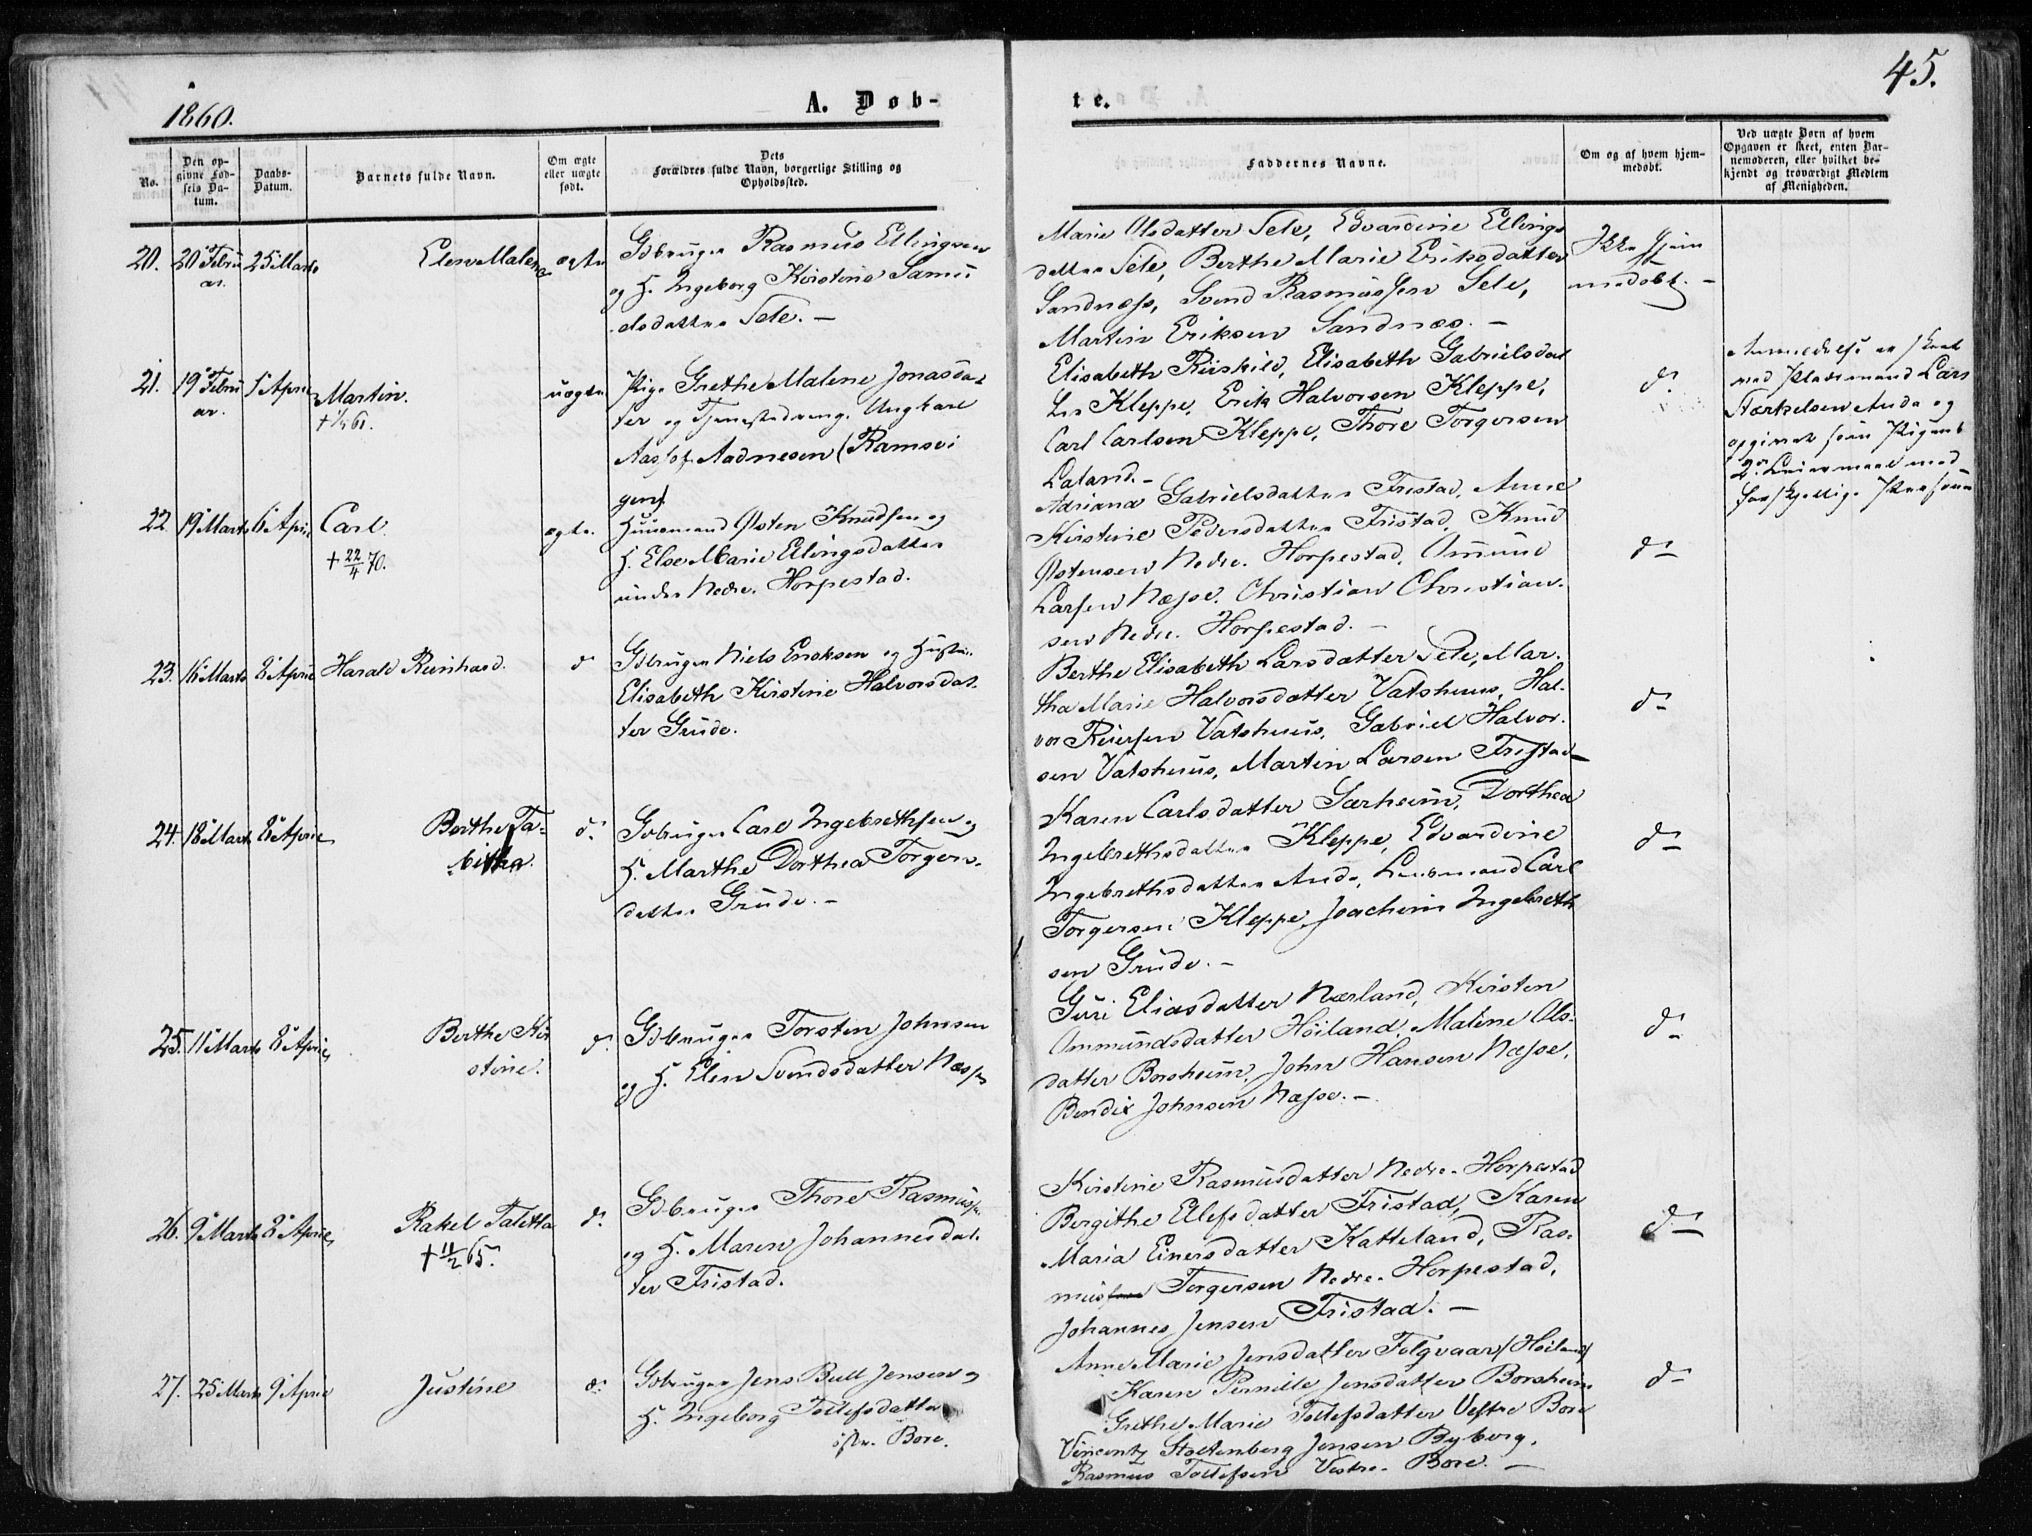 45.
1860.
A. Døb-
te.
No.
Den op-
givne Fød-
sels Da-
tum.
Daabs-
Datum.
Barnets fulde Navn.
Om ægte
eller uægte
født.
Dets
Forældres fulde Navn, borgerlige Stilling og
Opholdssted.
Faddernes Navne.
Om og af hvem hjem-
medøbt.
Ved uægte Børn af hvem
Opgaven er skeet, enten Bar-
nemoderen, eller hvilket be-
kjendt og troværdigt Medlem
af Menigheden.
20. 20 Febru
ar.
25 Marts
Elen Malena
ægte
Gbruger Rasmus Ellingsen
og H. Ingeborg Kirstine Samu
elsdatter Sele. —
Marie Olsdatter Sele, Edvardine Ellings
datter Sele, Berthe Marie Eriksdatter
Sandnæss, Svend Rasmussen Sele,
Martin Eriksen Sandnæs. —
Ikke hjem
medøbt. —
21. 19 Febru
ar.
5 April
Martin.
+ 1/5 61.
uægte
Pige Grethe Malene Jonasdat
ter og Tjenestedreng, Ungkarl
Aadnesen (Ramsvi
gen)
Elisabeth Riiskild, Elisabeth Gabrielsdat
ter Kleppe, Erik Halvorsen Kleppe,
Carl Carlsen Kleppe, Thore Torgersen
Laland. —
d°
Anmeldelse er skeet
ved Pladsmand Lars
Størkelsen Anda og
opgivet som Pigens
2den Leiermaal med
forskjellige Personer
22. 19 Marts 6 April
Carl.
+ 22/4 70.
ægte.
Huusmand Østen Knudsen og
H. Else Marie Ellingsdatter
under Nedre Horpestad.
Adriana Gabrielsdatter Tristad, Anne
Kirstine Pedersdatter Tristad, Knud
Østensen Nedre Horpestad, Omund
Larsen Næsse, Christian Christian-
sen Nedre Horpestad. —
d° —
23. 16 Marts 8 April Harald Reinhard.
d°
Gbruger Niels Eriksen og Hustru
Elisabeth Kirstine Halvorsdat-
ter Grude.
Berthe Elisabeth Larsdatter Sele, Mar-
tha Marie Halvorsdatter Vatshuus, Hal-
vor Reiersen Vatshuus, Gabriel Halvor-
sen Vatshuus, Martin Larsen Tristad —
d° —
24. 18 Marts 8 April
Berthe Ta-
bitha.
d°
Gbruger Carl Ingebrethsen og
H. Marthe Dorthea Torgers-
datter Grude. —
Karen Carlsdatter Særheim, Dorthea
Ingebrethsdatter Kleppe, Edvardine
Ingebrethsdatter Anda, Carl
Torgersen Kleppe, Joachim Ingebreth
sen Grude. —
d° —
25. 11 Marts 8 April
Berthe Kir
stine.
d°
Gbruger Torsten Johnsen
og H. Elen Svendsdatter Næsse
Guri Eliasdatter Nærland, Kirsten
Ommundsdatter Høiland, Malene Ols-
datter Borsheim, John Hansen Næsse,
Bendix Johnsen Næsse. —
d° —
26. 9 Marts 8 April
Rakel Taletta
+ 11/2 65.
d°
Gbruger Thore Rasmussen
og H. Maren Johannesdat-
ter Tristad.
Kirstine Rasmusdatter Nedre Horpestad
Bergithe Ellefsdatter Tristad, Karen
Maria Einersdatter Katteland, Ras-
mus Torgersen Nedre Horpestad,
Johannes Jensen Tristad. —
d° —
27. 25 Marts 9 April
Justine
d°
Gbruger Jens Bull Jensen og
H. Ingeborg Tollefsdatter
østre Bore.
Anne Marie Jensdatter Folgvaar (Høiland)
Karen Pernille Jensdatter Borsheim
Grethe Marie Tollefsdatter Vestre Bore
Vincentz Stoltenberg Jensen Byberg,
Rasmus Tollefsen Vestre Bore. —
d° —